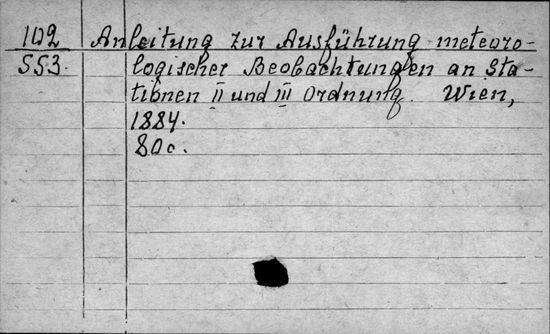 102 Anleitung zur Ausführung meteoro-
553. logischer Beobachtungen an Sta-
tionen II und III Ordnung. Wien,
1884.
80c.